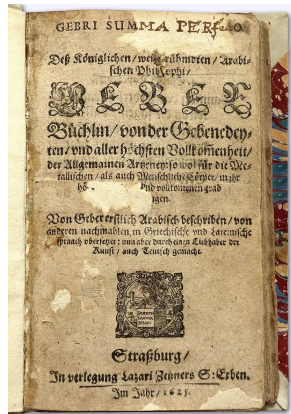 GEBRI SUMMA PERF O
Deß Königlichen / weitg rühmdten / Arabi-
schen Philosophi /
GEBER
Büchlin / von der Gebenedey-
ten / vnd aller höchsten Vollkomenheit /
der Allgemainen Artzney: so wol für die Me-
tallischen / als auch Menschliche Körper / in jhr
hö- vnd vollkomnen grad
gen.
Von Geber erstlich Arabisch beschriben / von
anderen nachmahlen in Griechische vnd Lateinische
spraach vbersetzet: nun aber durch einen Liebhaber der
Kunst / auch Teutsch gemacht.
Straßburg /
In verlegung Lazari Zetzners S: Erben.
Im Jahr / 1625.